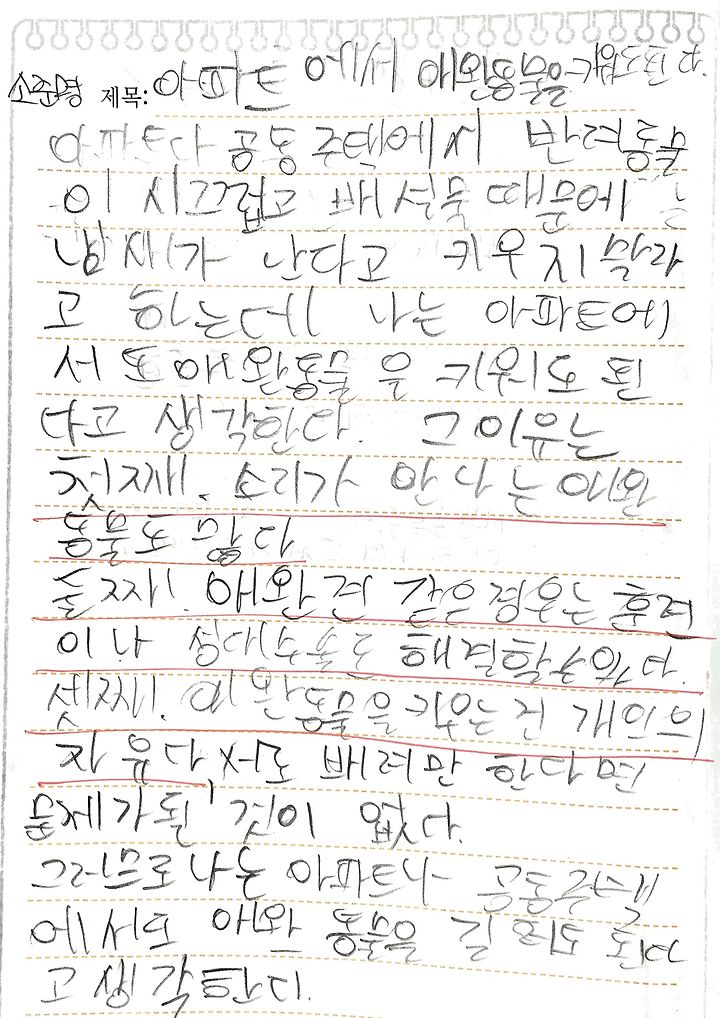 소준명 제목: 아파트 에서 애완동물을 키워도 된다.
아파트나 공동주택에서 반려동물
이 시끄럽고 배설물 때문에
냄새가 난다고 키우지 말라
고 하는데 나는 아파트에
서도 애완동물 을 키워도 된
다고 생각한다. 그 이유는
첫째. 소리가 안 나는 애완
동물도 많다
둘째. 애완견 같은경우는 훈련
이나 성대수술로 해결할수있다.
셋째. 애완동물을 키우는 건 개인의
자유다 서로 배려만 한다면
문제가될 것이 없다.
그러므로 나는 아파트나 공동주택
에서도 애완 동물을 길러도 된다
고 생각한다.